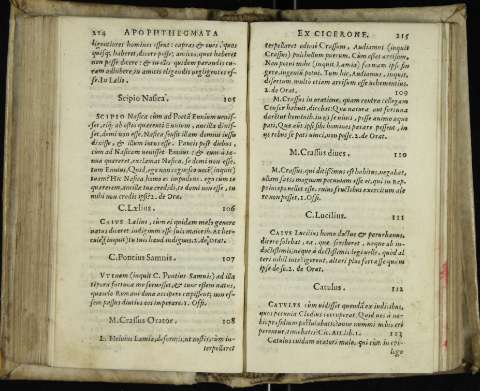 214 APOPHTHEGMATA
ligentiores homines essent: capras & oues quot
quisq; haberet, dicere posse; amicos, quot haberet
non posse dicere: & in illis quidem parandis cu-
ram adhibere, in amicis eligendis negligentes es-
se. In Lælio.
Scipio Nasica. 105
SCIPIO Nasica cùm ad Poëtã Ennium venis-
set, eiq; ab ostio quærenti Ennium, ancilla dixis-
set, domi non esse. Nasica sensit illam domini iussu
dixisse, & illum intus esse. Paucis post diebus,
cùm ad Nasicam venisset Ennius, & eum à ia-
nua quæreret, exclamat Nasica, se domi non esse.
tum Ennius, Quid, ego non cognosco vocẽ, inquit,
tuam? Hic Nasica homo es impudens. ego cùm te
quærerem, ancillæ tuæ credidi, te domi non esse, tu
mihi non credis ipsi? 2. de Orat.
C. Lælius. 106
CAIVS Lælius, cùm ei quidam malo genere
natus diceret, indignum esse suis maioribus. At her-
cule, inquit, tu tuis haud indignus. 2. de Orat.
C. Pontius Samnis. 107
VTINAM (inquit C. Pontius Samnis) ad illa
tẽpora fortuna me seruasset, & tunc essem natus,
quando Romani dona accipere cœpissent, non es-
sem passus diutius eos imperare. 2. Offi.
M. Crassus Orator. 108
L. Helvius Lamia, deformis, ut nostis, cùm in-
terpellaret
EX CICERONE. 215
terpellaret odiosè Crassum, Audiamus (inquit
Crassus) pulchellum puerum. Cùm esset arrisum,
Non potui mihi (inquit Lamia) formam ipse fin-
gere, ingenium potui. Tum hic, Audiamus, inquit,
disertum. multò etiam arrisum esse vehementius.
2. de Orat. 109
M. Crassus in oratione, quam contra collegam
Censor habuit, dicebat: Quæ natura aut fortuna
darentur hominib. in iis se vinci posse animo æquo
pati, Quæ aut ipsi sibi homines parare possent, in
iis rebus se pati vinci, non posse. 2. de Orat.
M. Crassus diues. 110
M. Crassus, qui ditissimus est habitus, negabat,
ullam satis magnam pecuniam esse ei, qui in Rep.
princeps vellet esse. cuius fructibus exercitum ale-
re non posset. 1. Offi.
C. Lucilius. 111
CAIVS Lucilius homo doctus & perurbanus,
dicere solebat, ea, quæ scriberet, neque ab in-
doctissimis, neque à doctissimis legi velle. quòd al-
teri nihil intelligerent, alteri plus fortasse quàm
ipse de se. 2. de Orat.
Catulus. 112
CATVLVS cùm uidisset quendã ex iudicibus,
quos pecunia Clodius corruperat, Quid uos à no-
bis præsidium postulabatis? an ne nummi uobis eri-
perentur, timebatis? Cic. Att. lib. 1.
113
Catulus cuidam oratori malo, qui cùm in epi-
logo